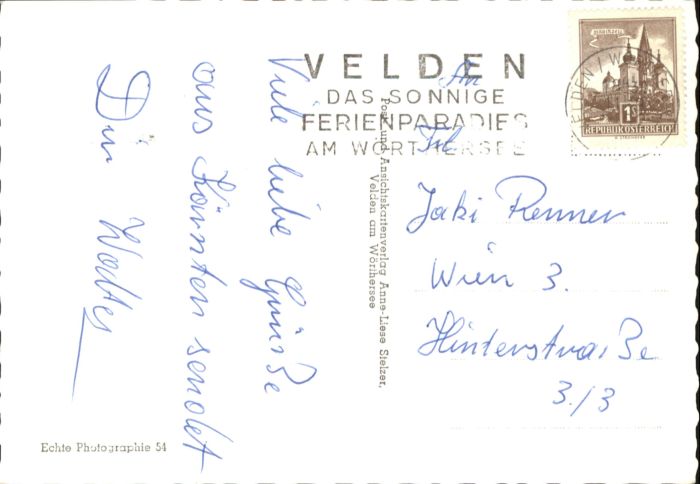 Viele liebe Grüße
aus Kärnten sendet
Dir Walter
Echte Photographie 54
Post und Ansichtskartenverlag Anne-Liese Stelzer,
Velden am Wörthersee
VELDEN
DAS SONNIGE
FERIENPARADIES
AM WÖRTHERSEE
1S
REPUBLIK ÖSTERREICH
An
Frl.
Jaki Renner
Wien 3.
Hinterstraße
3/3